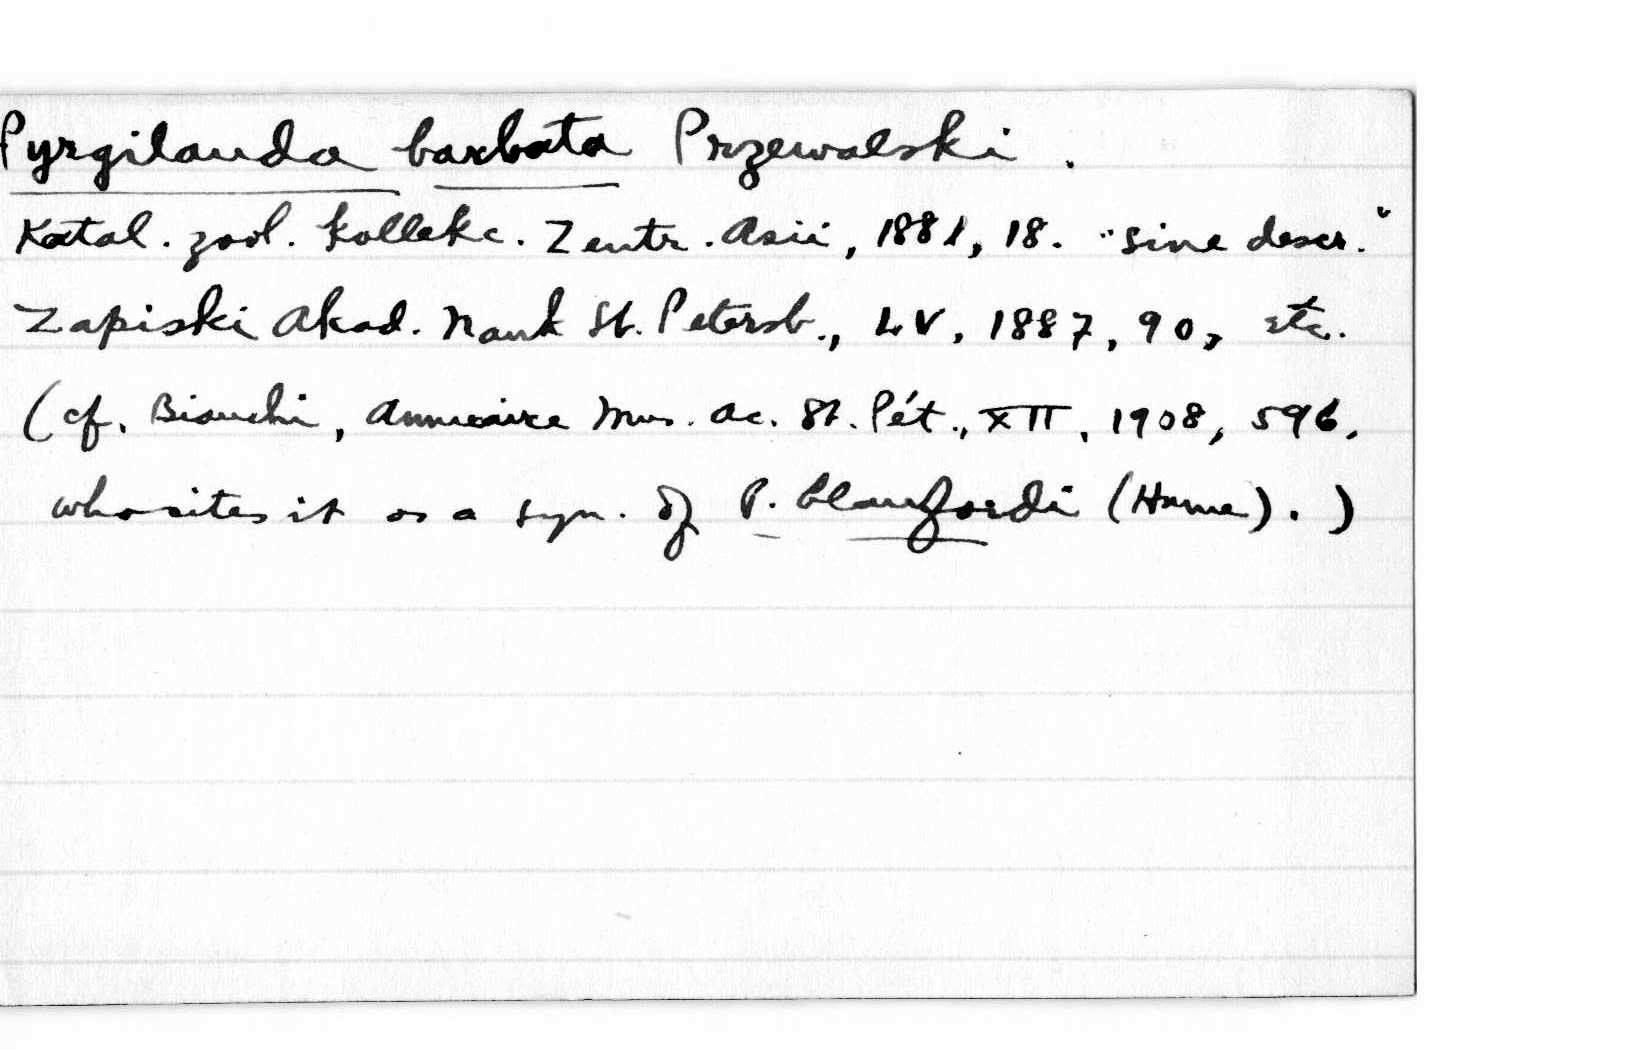 Pyrgilauda barbata Przewalski.
Katal. zool. kollekc. Zentr. Asii, 1881, 18. "sine descr."
Zapiski Akad. Nauk St. Petersb., LV, 1887, 90, etc.
(cf. Bianchi, Annuaire Mus. Ac. St. Pét., XII, 1908, 596,
who cites it as a syn. of P. blanfordi (Hume).)